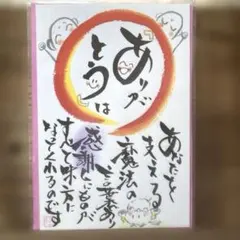 ありが
とうは
あなたを
支える
魔法の
言葉
感謝したものが
すべて味方に
なってくれるのです